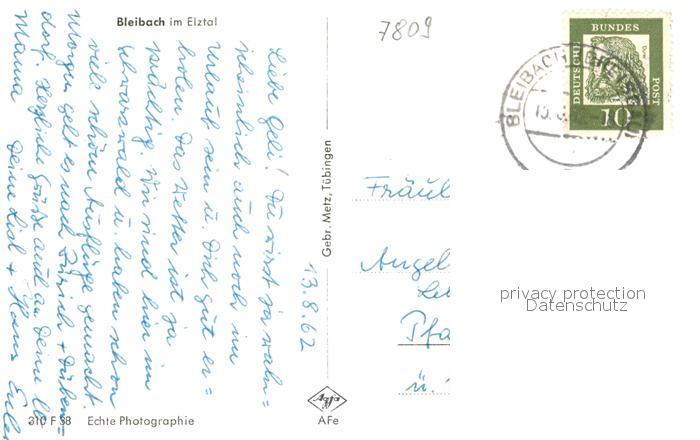 Bleibach im Elztal
7809
Liebe Geli! Du wirst ja wahr=
scheinlich auch noch im
Urlaub sein u. Dich gut er=
holen. Das Wetter ist ja
prächtig. Wir sind hier im
Schwarzwald u. haben schon
viele schöne Ausflüge gemacht.
Morgen geht es nach Zürich +
dorf. Herzliche Grüße auch an Deine lb
Mama Deine Lisl + Hans
13.8.62
Gebr. Metz, Tübingen
310 F 58 Echte Photographie
Agfa
AFe
DEUTSCHE BUNDES POST
10
BLEIBACH
Fräul
Angel
Pfa
ü.
privacy protection
Datenschutz